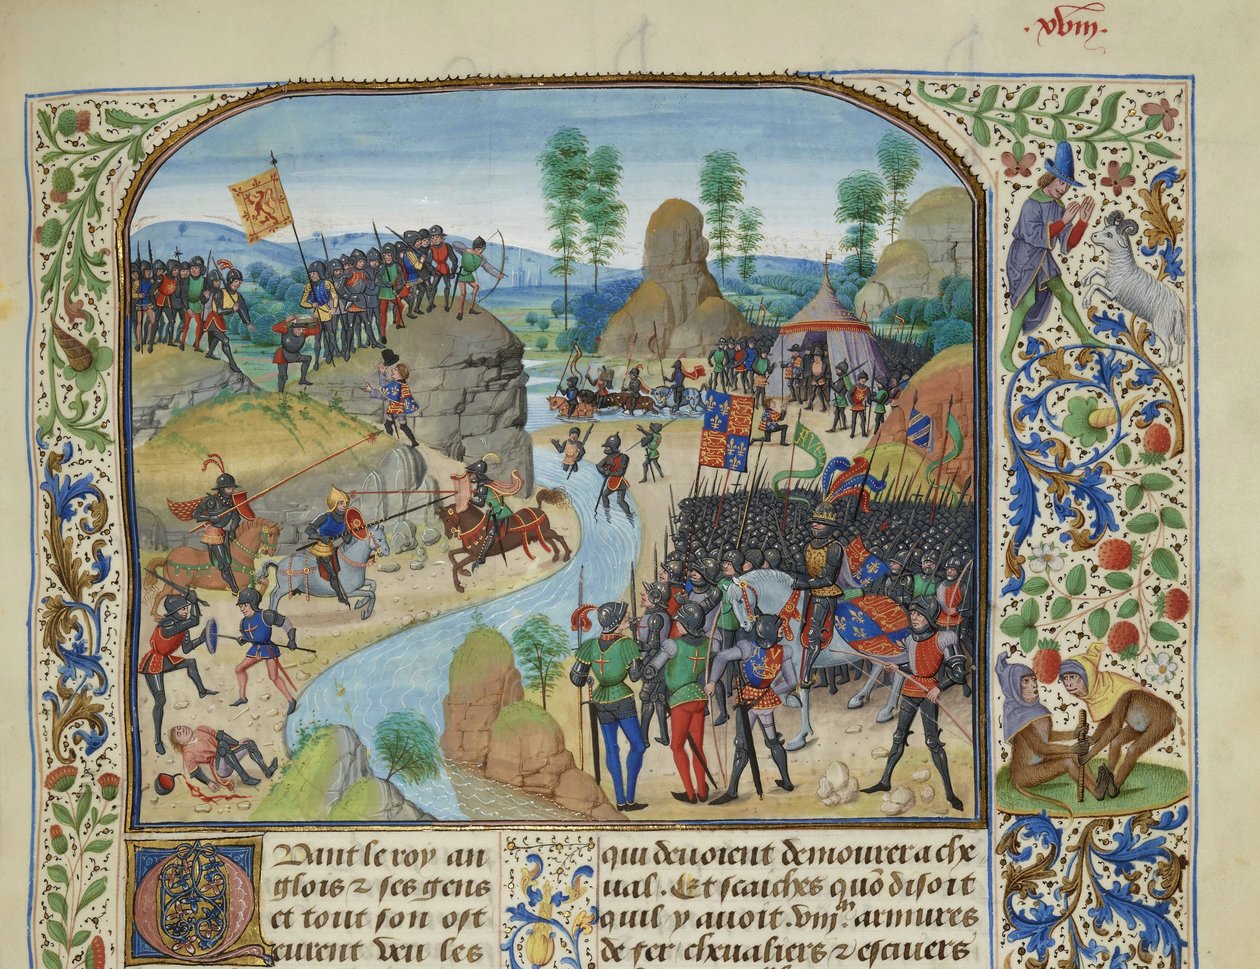 .xviii.
Quant le roy an
glois ⁊ ses gens
et tout son ost
eurent veu les
qui deuoient demourer a che
ual. Et scaiches quō disoit
quil y auoit. viijᵐ. armures
de fer cheualiers ⁊ escuiers